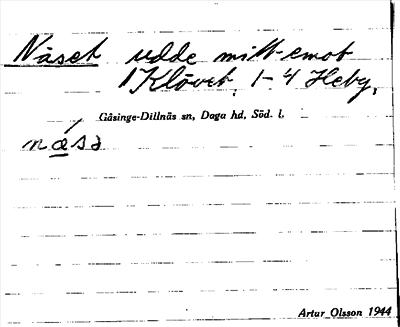 Näset udde mitt emot
Klövet, 1-4 Heby,
Gåsinge-Dillnäs sn, Daga hd, Söd. l.
næsə
Artur Olsson 1944